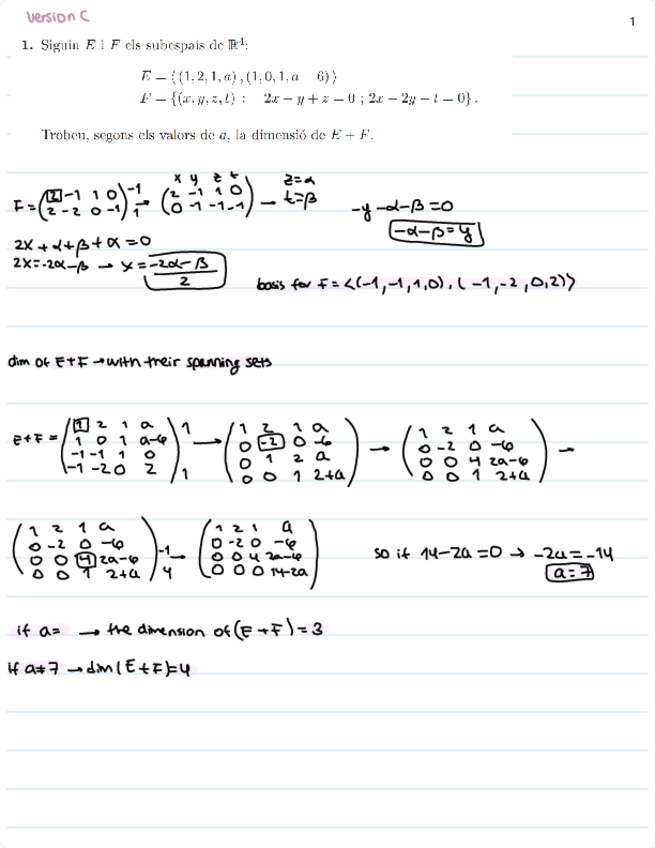 Version C
1
1. Siguin E i F els subespais de ℝ⁴:
E = ⟨(1, 2, 1, a), (1, 0, 1, a   6)⟩
F = {(x, y, z, t) :   2x − y + z = 0 ; 2x − 2y − t = 0}.
Trobeu, segons els valors de a, la dimensió de E + F.
F = (2 -1 1 0 / 2 -2 0 -1) -1 1 → x y z t (2 -1 1 0 / 0 -1 -1 -1) → z=α t=β
-y -α-β=0
-α-β=y
2x+α+β+α=0
2x=-2α-β → x = (-2α-β)/2
basis for F = <(-1,-1,1,0), (-1,-2,0,2)>
dim of E+F → with their spanning sets
E+F = (1 2 1 a / 1 0 1 a-6 / -1 -1 1 0 / -1 -2 0 2) 1 1 → (1 2 1 a / 0 -2 0 -6 / 0 1 2 a / 0 0 1 2+a) → (1 2 1 a / 0 -2 0 -6 / 0 0 4 2a-6 / 0 0 1 2+a) →
(1 2 1 a / 0 -2 0 -6 / 0 0 4 2a-6 / 0 0 1 2+a) -1 4 → (1 2 1 a / 0 -2 0 -6 / 0 0 4 2a-6 / 0 0 0 14-2a)
so if 14-2a=0 → -2a=-14
a=7
if a= → the dimension of (E+F)=3
if a≠7 → dim(E+F)=4